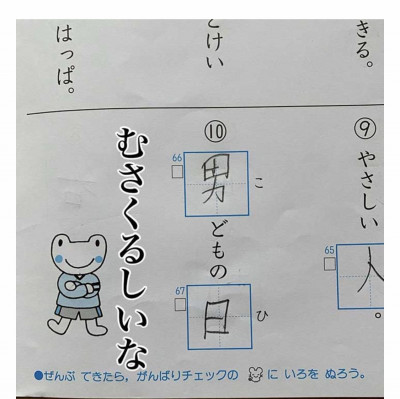 きる。
とけい
はっぱ。
⑨ やさしい 人。
65
⑩ 男どもの日
66
こ
67
ひ
むさくるしいな
●ぜんぶ できたら、がんばりチェックの に いろを ぬろう。